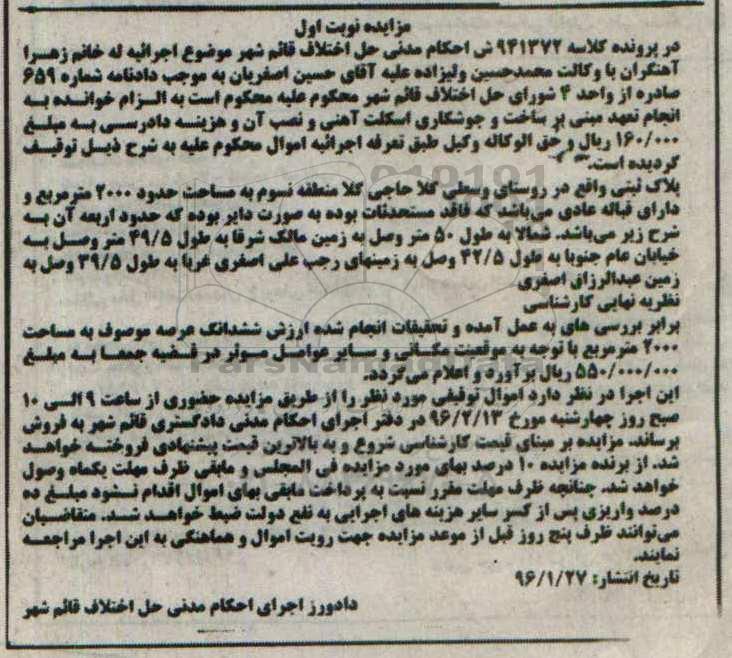 مزایده نوبت اول
در پرونده کلاسه ۹۴۱۳۷۲ ش احکام مدنی حل اختلاف قائم شهر موضوع اجرائیه له خانم زهرا
آهنگران با وکالت محمدحسین ولیزاده علیه آقای حسین اصغریان به موجب دادنامه شماره ۶۵۹
صادره از واحد ۴ شورای حل اختلاف قائم شهر محکوم علیه محکوم است به الزام خوانده به
انجام تعهد مبنی بر ساخت و جوشکاری اسکلت آهنی و نصب آن و هزینه دادرسی به مبلغ
۱۶۰/۰۰۰ ریال و حق الوکاله وکیل طبق تعرفه اجرائیه اموال محکوم علیه به شرح ذیل توقیف
گردیده است.
پلاک ثبتی واقع در روستای وسطی کلا حاجی کلا منطقه نسوم به مساحت حدود ۲۰۰۰ مترمربع و
دارای قباله عادی می‌باشد که فاقد مستحدثات بوده به صورت دایر بوده که حدود اربعه آن به
شرح زیر می‌باشد. شمالا به طول ۵۰ متر وصل به زمین مالک شرقا به طول ۴۹/۵ متر وصل به
خیابان عام جنوبا به طول ۴۲/۵ وصل به زمینهای رجب علی اصغری غربا به طول ۳۹/۵ وصل به
زمین عبدالرزاق اصغری
نظریه نهایی کارشناسی
برابر بررسی های به عمل آمده و تحقیقات انجام شده ارزش ششدانگ عرصه موصوف به مساحت
۲۰۰۰ مترمربع با توجه به موقعیت مکانی و سایر عوامل موثر در قضیه جمعا به مبلغ
۵۵۰/۰۰۰/۰۰۰ ریال برآورد و اعلام می‌گردد.
این اجرا در نظر دارد اموال توقیفی مورد نظر را از طریق مزایده حضوری از ساعت ۹ الی ۱۰
صبح روز چهارشنبه مورخ ۹۶/۲/۱۳ در دفتر اجرای احکام مدنی دادگستری قائم شهر به فروش
برساند. مزایده بر مبنای قیمت کارشناسی شروع و به بالاترین قیمت پیشنهادی فروخته خواهد
شد. از برنده مزایده ۱۰ درصد بهای مورد مزایده فی المجلس و مابقی ظرف مهلت یکماه وصول
خواهد شد. چنانچه ظرف مهلت مقرر نسبت به پرداخت مابقی بهای اموال اقدام نشود مبلغ ده
درصد واریزی پس از کسر سایر هزینه های اجرایی به نفع دولت ضبط خواهد شد. متقاضیان
می‌توانند ظرف پنج روز قبل از موعد مزایده جهت رویت اموال و هماهنگی به این اجرا مراجعه
نمایند.
تاریخ انتشار: ۹۶/۱/۲۷
دادورز اجرای احکام مدنی حل اختلاف قائم شهر